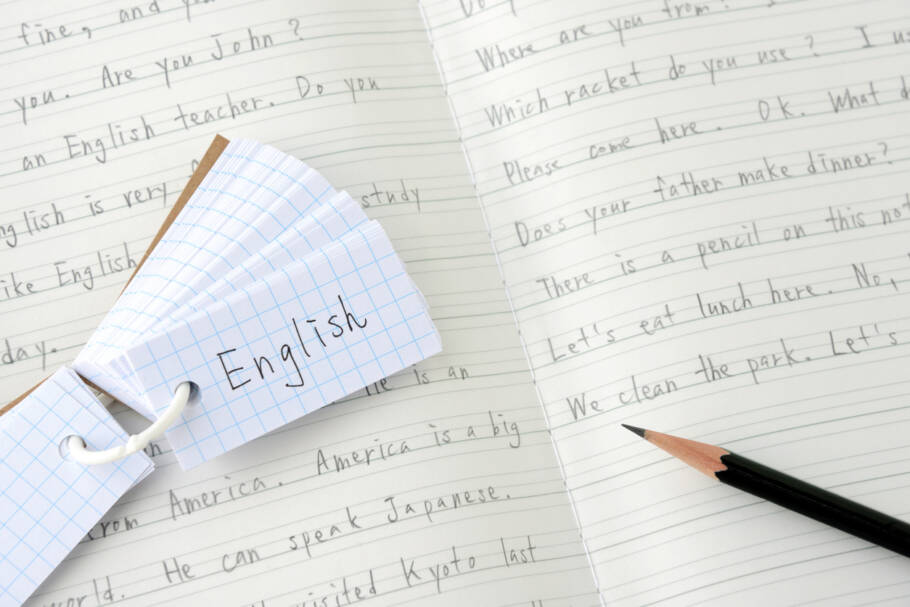 fine, and
you. Are you John?
an English teacher. Do you
is very
study
like English
day.
English
He is an
America. America is a big
He can speak Japanese.
visited Kyoto last
Where are you from?
Which racket do you use? I
Please come here. Ok. What
Does your father make dinner?
There is a pencil on this
Let's eat lunch here. No,
We clean the park. Let's